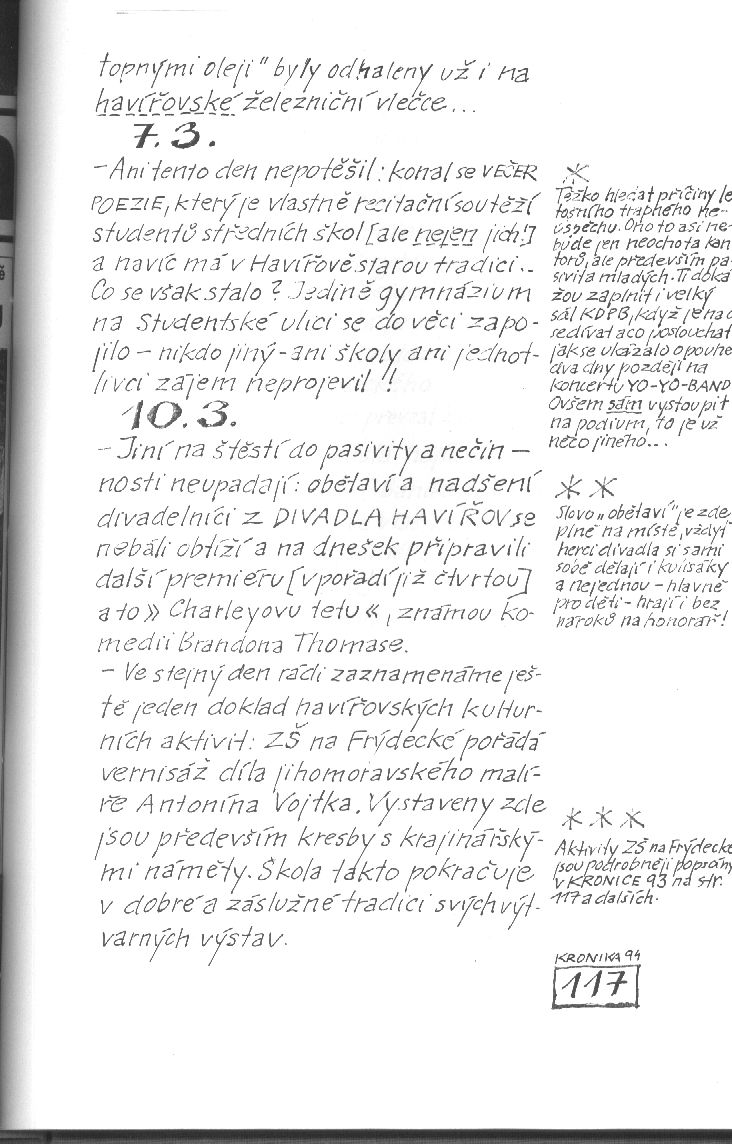 topnými oleji" byly odhaleny už i na
havířovské železniční vlečce...
7.3.
– Ani tento den nepotěšil: konal se VEČER
POEZIE, který je vlastně recitační soutěží
studentů středních škol [ale nejen jich!]
a navíc má v Havířově starou tradici..
Co se však stalo? Jedině gymnázium
na Studentské ulici se do věci zapo-
jilo – nikdo jiný - ani školy ani jednot-
livci zájem neprojevil !
10.3.
– Jiní na štěstí do pasivity a nečin –
nosti neupadají: obětaví a nadšení
divadelníci z DIVADLA HAVÍŘOV se
nebáli obtíží a na dnešek připravili
další premiéru [v pořadí již čtvrtou]
a to » Charleyovu tetu « , známou ko-
medii Brandona Thomase.
– Ve stejný den rádi zaznamenáme ješ-
tě jeden doklad havířovských kultur-
ních aktivit: ZŠ na Frýdecké pořádá
vernisáž díla jihomoravského malí-
ře Antonína Vojtka. Vystaveny zde
jsou především kresby s krajinářský-
mi náměty. Škola takto pokračuje
v dobré a záslužné tradici svých výt-
varných výstav.
*
Těžko hledat příčiny le
tošního trapného ne-
úspěchu. Ono to asi ne-
bude jen neochota kan
torů, ale především pa-
sivita mladých. Ti doká
žou zaplnit i velký
sál KDPB, když je na c
se dívat a co poslouchat
jak se ukázalo o pouhé
dva dny později na
koncertu YO-YO-BAND
Ovšem sám vystoupit
na podium, to je už
něco jiného...
* *
Slovo „obětaví" je zde
plně na místě, vždyť
herci divadla si sami
sobě dělají i kulisáky
a nejednou – hlavně
pro děti – hrají i bez
nároků na honorář!
* * *
Aktivity ZŠ na Frýdecké
jsou podrobněji popsány
v KRONICE 93 na str.
117 a dalších.
KRONIKA 94
117